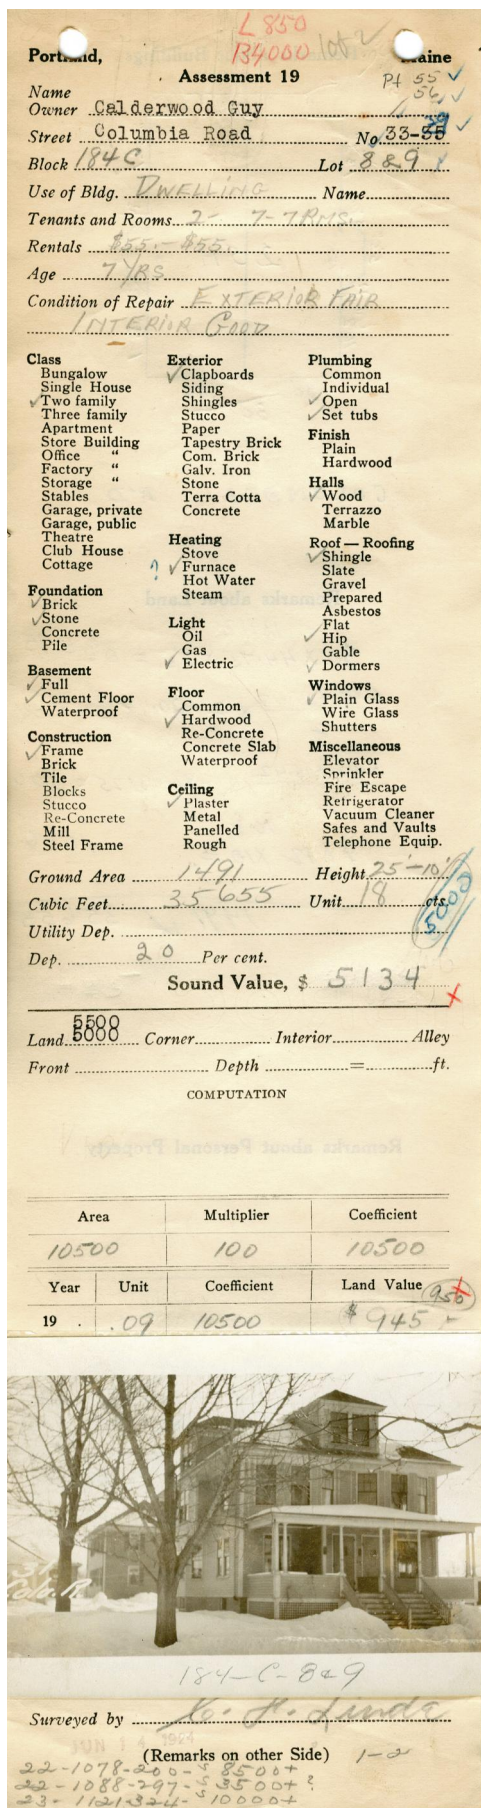 L 850
B4000 1002
Portland, Maine
Assessment 19
Pt 55
56
Name
Owner Calderwood Guy
39
Street Columbia Road No. 33-35
Block 184 C Lot 8 & 9
Use of Bldg. DWELLING Name
Tenants and Rooms 2- 7-7 RMS.
Rentals $55.- $55.
Age 7 YRS
Condition of Repair EXTERIOR FAIR
INTERIOR GOOD
Class
Bungalow
Single House
Two family
Three family
Apartment
Store Building
Office "
Factory "
Storage "
Stables
Garage, private
Garage, public
Theatre
Club House
Cottage
Foundation
Brick
Stone
Concrete
Pile
Basement
Full
Cement Floor
Waterproof
Construction
Frame
Brick
Tile
Blocks
Stucco
Re-Concrete
Mill
Steel Frame
Exterior
Clapboards
Siding
Shingles
Stucco
Paper
Tapestry Brick
Com. Brick
Galv. Iron
Stone
Terra Cotta
Concrete
Heating
Stove
? Furnace
Hot Water
Steam
Light
Oil
Gas
Electric
Floor
Common
Hardwood
Re-Concrete
Concrete Slab
Waterproof
Ceiling
Plaster
Metal
Panelled
Rough
Plumbing
Common
Individual
Open
Set tubs
Finish
Plain
Hardwood
Halls
Wood
Terrazzo
Marble
Roof — Roofing
Shingle
Slate
Gravel
Prepared
Asbestos
Flat
Hip
Gable
Dormers
Windows
Plain Glass
Wire Glass
Shutters
Miscellaneous
Elevator
Sprinkler
Fire Escape
Refrigerator
Vacuum Cleaner
Safes and Vaults
Telephone Equip.
Ground Area 1491 Height 25'-10"
Cubic Feet 35655 Unit 18 cts.
5000
Utility Dep.
Dep. 20 Per cent.
Sound Value, $ 5134
5500
Land 5000 Corner Interior Alley
Front Depth = ft.
COMPUTATION
Remarks about Personal Property
Area Multiplier Coefficient
10500 100 10500
Year Unit Coefficient Land Value 950
19 .09 10500 $ 945.-
184-C-8&9
Surveyed by
JUN 14 1924
(Remarks on other Side) 1-2
22-1078-200- $ 8500+
22-1088-297- $ 3500+ ?
23-1121-324- $ 10000+